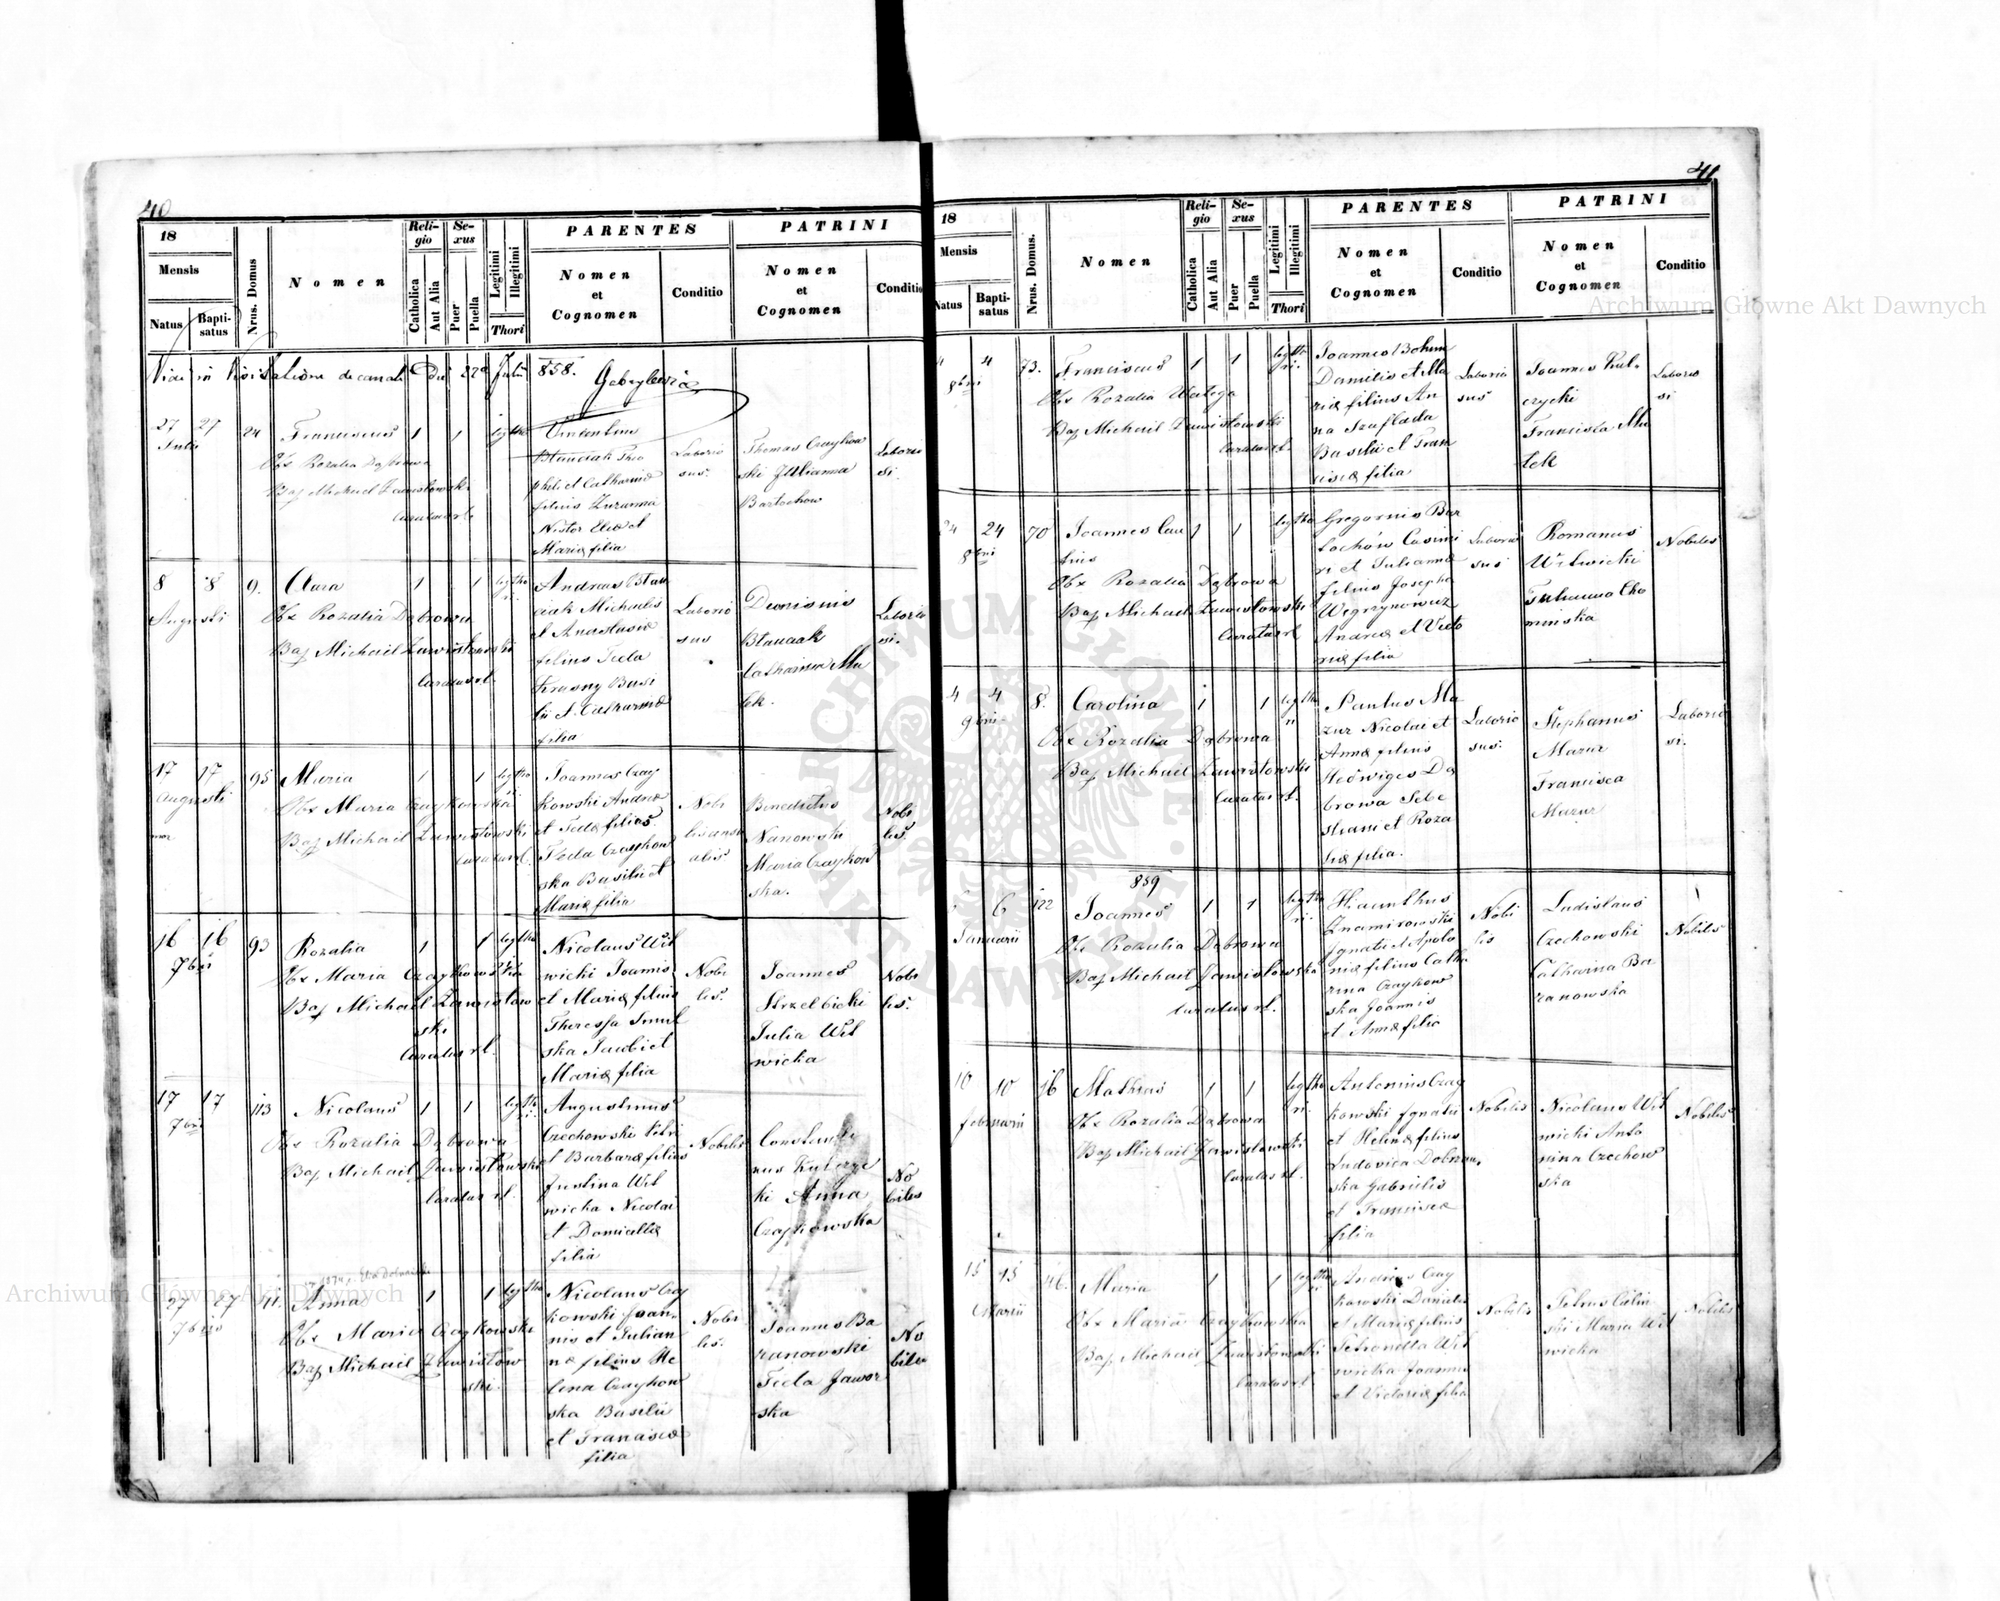 40
18
Mensis
Natus
Bapti-
satus
Nrus. Domus
Nomen
Reli-
gio
Catholica
Aut Alia
Se-
xus
Puer
Puella
Legitimi
Illegitimi
Thori
PARENTES
Nomen
et
Cognomen
Conditio
PATRINI
Nomen
et
Cognomen
Conditio
Die 22a Julii 858.
27 27 24 Franciscus 1 1
Julii
Obx Rozalia Dąbrowa
Bap Michael Zawistowski
Curatus rl.
et Catharinæ
filius Zuzanna
Nestor Eliæ et
Mariæ filia
Laborio
sus.
Thomas Czaykow
ski Julianna
Bartochow
Laborio
si.
8 8 9. Clara 1 1
Augusti
Obx Rozalia Dąbrowa
Bap Michael Zawistowski
Curatus rl.
Andreas Blau
ciak Michaelis
et Anastasiæ
filius Tecla
Krasny Basi
lii et Catharinæ
filia
Laborio
sus
Dionisius
Blauciak
Catharina Mu
lek.
Laborio
si.
17 17 95 Maria 1 1
Augusti
Obx Maria Czaykowska
Bap Michael Zawistowski
Curatus rl.
Joannes Czay
kowski Andreæ
et Teclæ filius
Tecla Czaykow
ska Basilii et
Mariæ filia
Benedictus
Nanowski
Maria Czaykow
ska.
Nobi
les.
16 16 93 Rozalia 1 1
7bris
Obx Maria Czaykowska
Bap Michael Zawistow
ski
Curatus rl.
Nicolaus Wit
wicki Joannis
et Mariæ filius
Theressa Smul
ska Jacobi et
Mariæ filia
Nobi
les.
Joannes
Strzelbicki
Julia Wit
wicka
Nobi
les.
17 17 113 Nicolaus 1 1
7bris
Obx Rozalia Dąbrowa
Bap Michael Zawistowski
Curatus rl.
Augustinus
Czechowski Petri
et Barbaræ filius
Justina Wit
wicka Nicolai
et Domicellæ
filia
Nobilis
Constanti
nus Kulczyc
ki Anna
Czaykowska
No
biles
27 27 41. Anna 1 1
7bris
Obx Maria Czaykowska
Bap Michael Zawistow
ski.
Nicolaus Czay
kowski Joan-
nis et Julian
næ filius He
lena Czaykow
ska Basilii
et Franciscæ
filia
Nobi
les.
Joannes Ba
ranowski
Tecla Jawor
ska
No
biles
41
18
Mensis
Natus
Bapti-
satus
Nrus. Domus.
Nomen
Reli-
gio
Catholica
Aut Alia
Se-
xus
Puer
Puella
Legitimi
Illegitimi
Thori
PARENTES
Nomen
et
Cognomen
Conditio
PATRINI
Nomen
et
Cognomen
Conditio
4 4 73. Franciscus 1 1
8bris
Obx Rozalia
Bap Michael Zawistowski
Curatus rl.
Danielis et Ma
riæ filius An
na Szaflada
Basilii et Fran
ciscæ filia
Laborio
sus
Joannes Kul-
czycki
Francisca Mu
lek
Laborio
si
24 24 70 Joannes Can
tius 1 1
8bris
Obx Rozalia Dąbrowa
Bap Michael Zawistowski
Curatus rl
Gregorius Bar
tochów Casimi
ri et Juliannæ
filius Josepha
Węgrzynowicz
Andreæ et Victo
riæ filia
Laborio
sus
Romanus
Witwicki
Julianna Cho
mińska
Nobiles
4 4 8. Carolina 1 1
9bris
Obx Rozalia Dąbrowa
Bap Michael Zawistowski
Curatus rl.
Paulus Ma
zur Nicolai et
Annæ filius
Hedwiges Dą
browa Seba
stiani et Roza
liæ filia.
Laborio
sus.
Stephanus
Mazur
Francisca
Mazur
Laborio
si.
859
6 122 Joannes 1 1
Januarii
Obx Rozalia Dąbrowa
Bap Michael Zawistowski
Curatus rl.
Hiacinthus
Znamirowski
Ignatii et Apolo
niæ filius Catha
rina Czaykow
ska Joannis
et Annæ filia
Nobi
lis
Ladislaus
Czechowski
Catharina Ba
ranowska
Nobiles
10 10 16 Mathias 1 1
Februarii
Obx Rozalia Dąbrowa
Bap Michael Zawistowski
Curatus rl.
Antonius Czay
kowski Ignatii
et Helenæ filius
Ludovica Dobrzan
ska Gabrielis
et Franciscæ
filia
Nobilis
Nicolaus Wit
wicki Anto
nina Czechow
ska
Nobiles
15 15 Maria 1 1
Martii
Obx Maria Czaykowska
Bap Michael Zawistowski
Curatus rl.
Andreas Czay
kowski Danielis
et Mariæ filius
Petronella Wit
wicka Joannis
et Victoriæ filia
Nobilis
Petrus
ski Maria Wit
wicka
Nobiles
Archiwum Główne Akt Dawnych
Archiwum Główne Akt Dawnych
ARCHIWUM GŁÓWNE AKT DAWNYCH